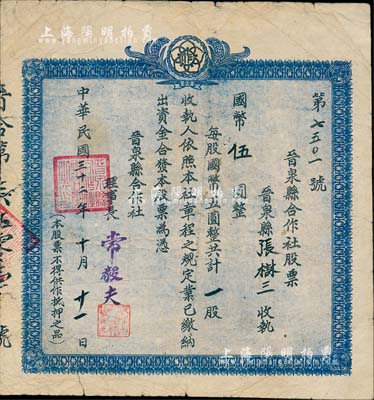 上海陽明拍賣
www.yangmingauction.com
第七五〇一號
晉泉縣合作社股票
晉泉縣張樹三收執
國幣伍圓整
每股國幣伍圓整共計一股
收執人依照本社章程之規定業已繳納
出資金合發本股票為憑
晉泉縣合作社
理事長 常毅夫
中華民國三十二年十月廿一日
（本股票不得供作抵押之品）
上海陽明拍賣